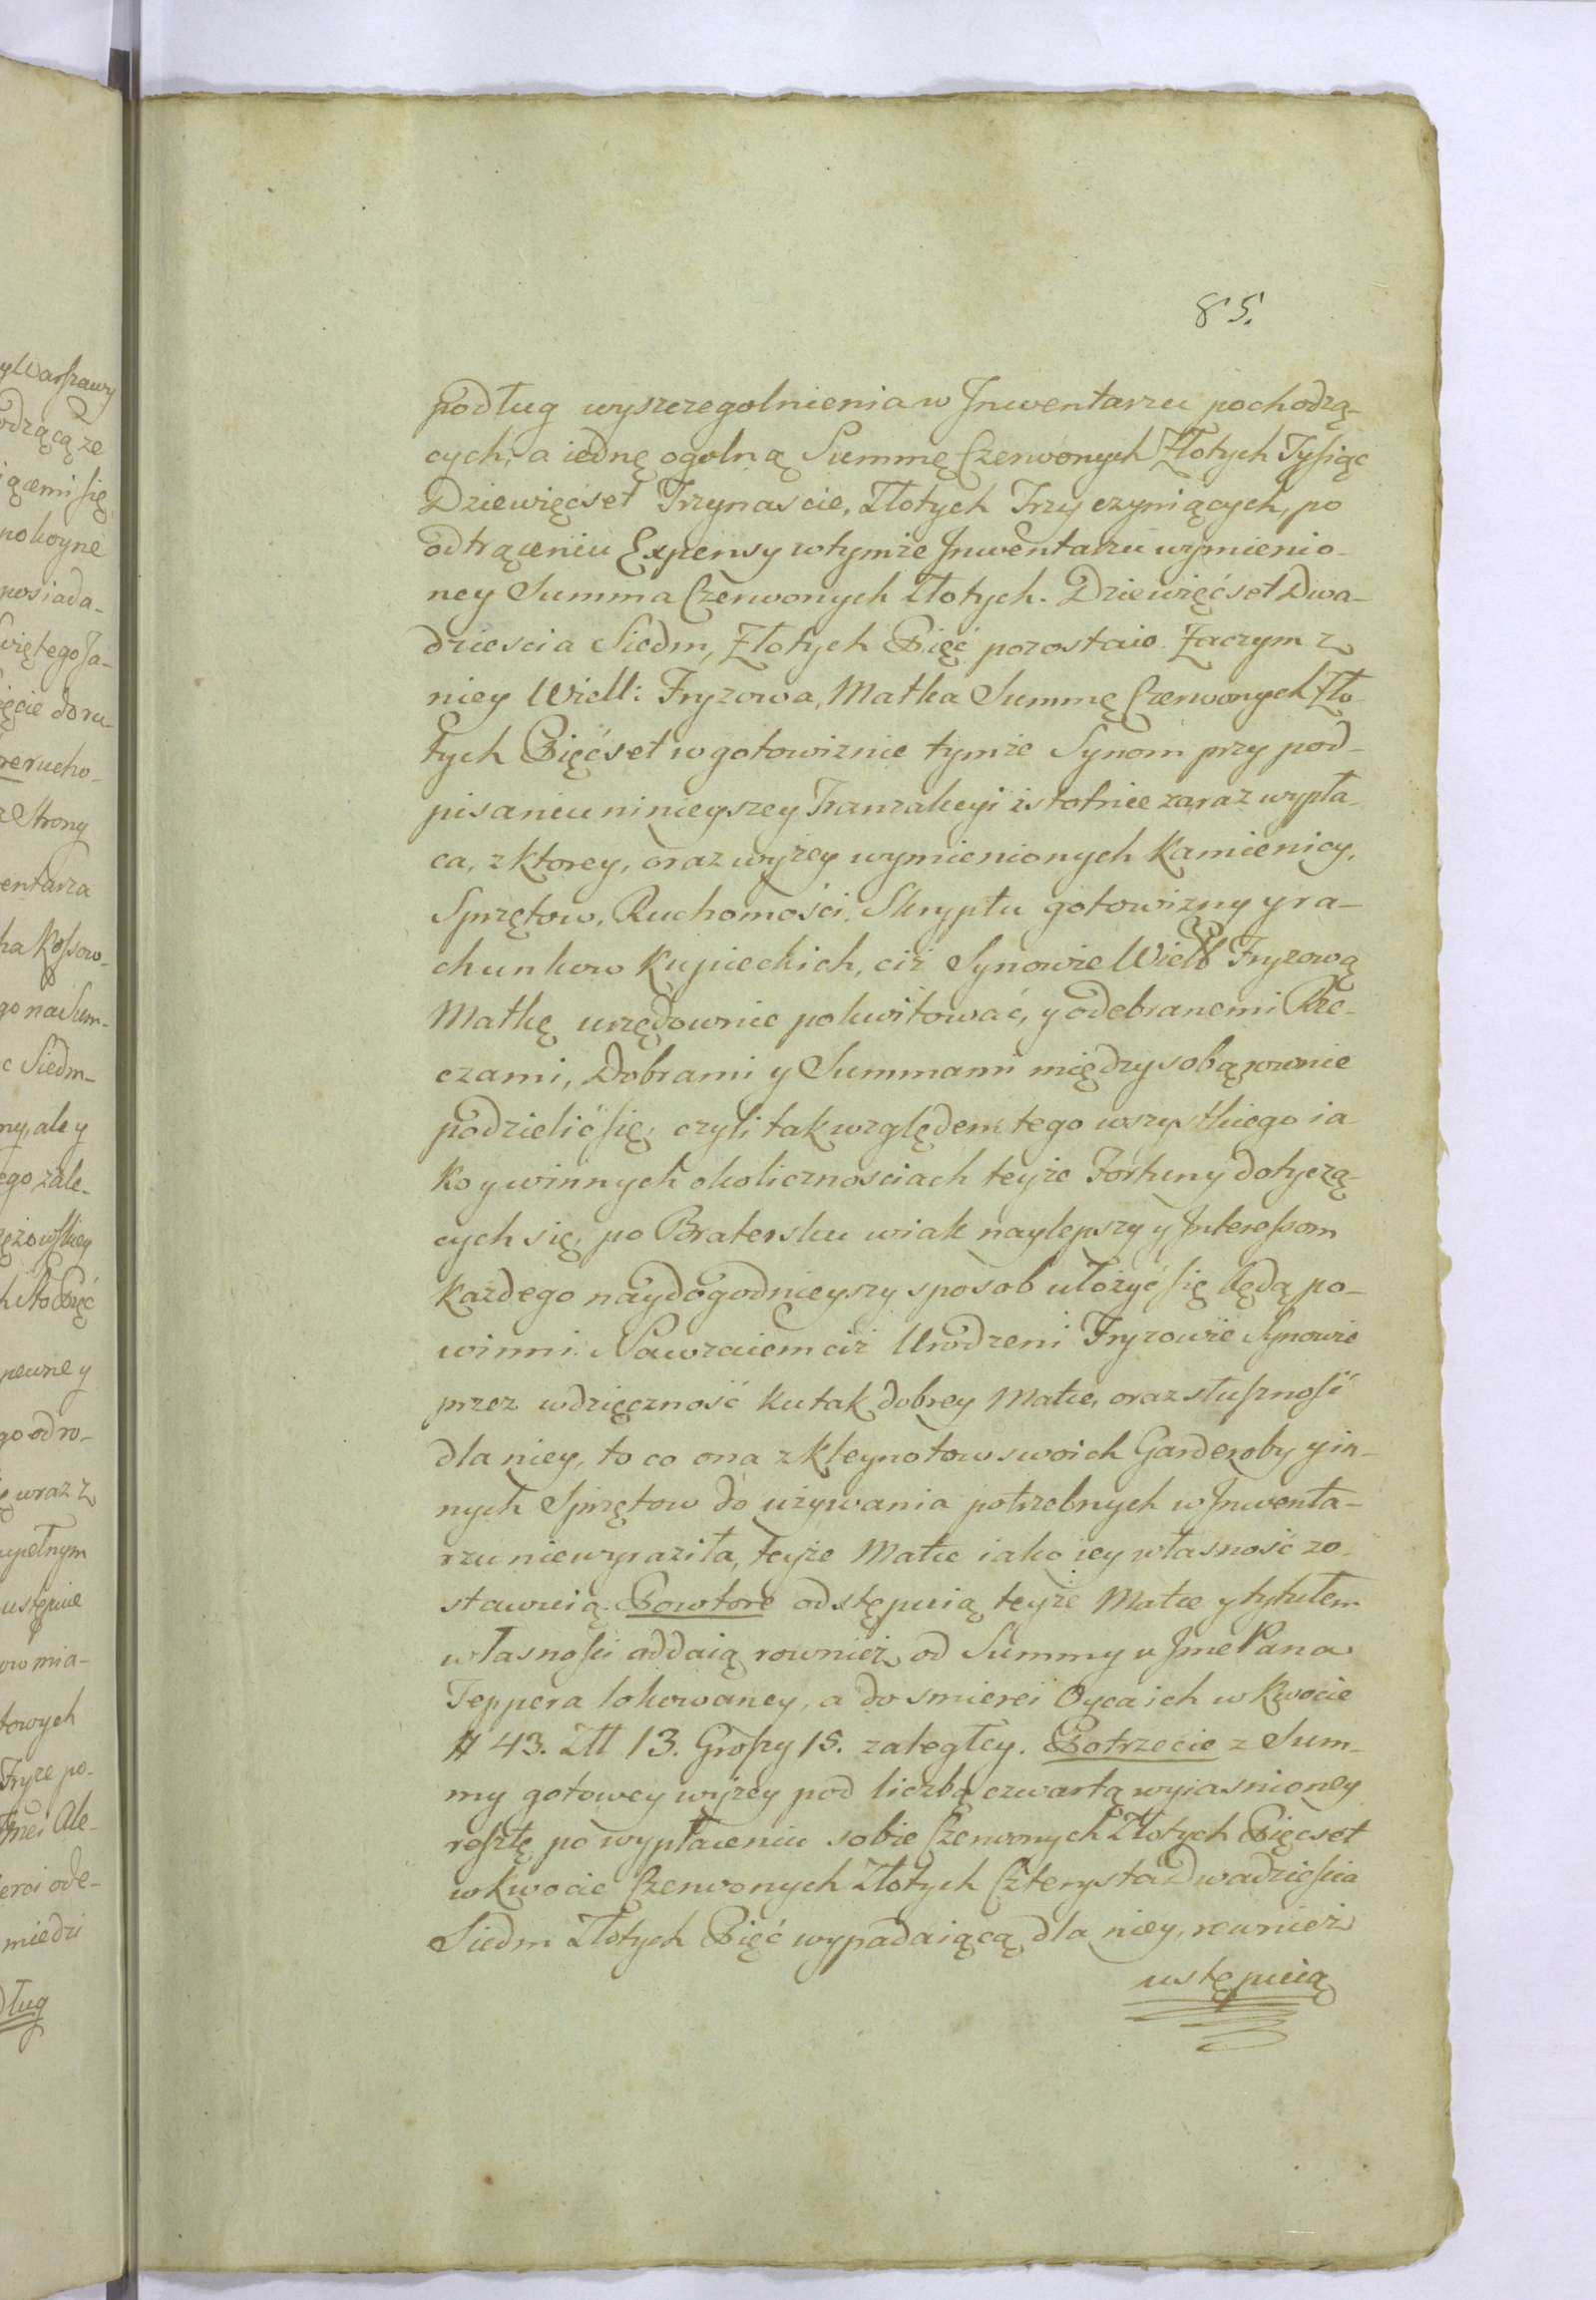 85.
podług wyszczegolnienia w Jnwentarzu pochodzą-
cych, a iednę ogolną Summę Czerwonych Złotych Tysiąc
Dziewięcset Trzynascie, Złotych Trzy czyniących, po
odtrąceniu Expensy wtymże Jnwentarzu wymienio-
ney Summa Czerwonych Złotych. Dziewięćset Dwa-
dziescia Siedm, Złotych Pięć pozostaie. Zaczym z
niey Wiell: Fryzowa, Matka Summę Czerwonych Zło
tych Pięćset w gotowiznie tymże Synom przy pod-
pisaniu ninieyszey Tranzakcyi istotnie zaraz wypła-
ca, z ktorey, oraz wyżey wymienionych Kamienicy,
Sprzętow, Ruchomości, Skryptu gotowizny y ra-
chunkow Kupieckich, ciż Synowie Wiell Fryzową
Matkę urzędownie pokwitować, y odebranemi Rze-
czami, Dobrami y Summami między sobą rownie
podzielić się, czyli tak względem tego wszystkiego ia-
ko y winnych okolicznosciach teyże Fortuny dotyczą-
cych się, po Bratersku wiak naylepszy y Jnteressom
każdego naydogodnieyszy sposob ułożyć się będą po-
winni. Nawzaiem ciż Urodzeni Fryzowie Synowie
przez wdzięczność ku tak dobrey Matce, oraz słuszność
dla niey, to co ona z kleynotow swoich Garderoby y in-
nych Sprzętow do używania potrzebnych w Jnwenta-
rzu niewyraziła, teyże Matce iako iey własność zo-
stawuią. Powtore odstępuią teyże Matce y tytułem
własności oddaią rownież od Summy u Jme Pana
Teppera lokowaney, a do smierci Oyca ich w kwocie
# 43. Zll 13. Groszy 15. zaległey. Potrzecie z Sum-
my gotowey wyżey pod liczbą czwartą wyiasnioney
resztę, po wypłaceniu sobie Czerwonych Złotych Pięcset
w kwocie Czerwonych Złotych Czterysta Dwadziescia
Siedm Złotych Pięć wypadaiącą dla niey, rownież
ustępuią